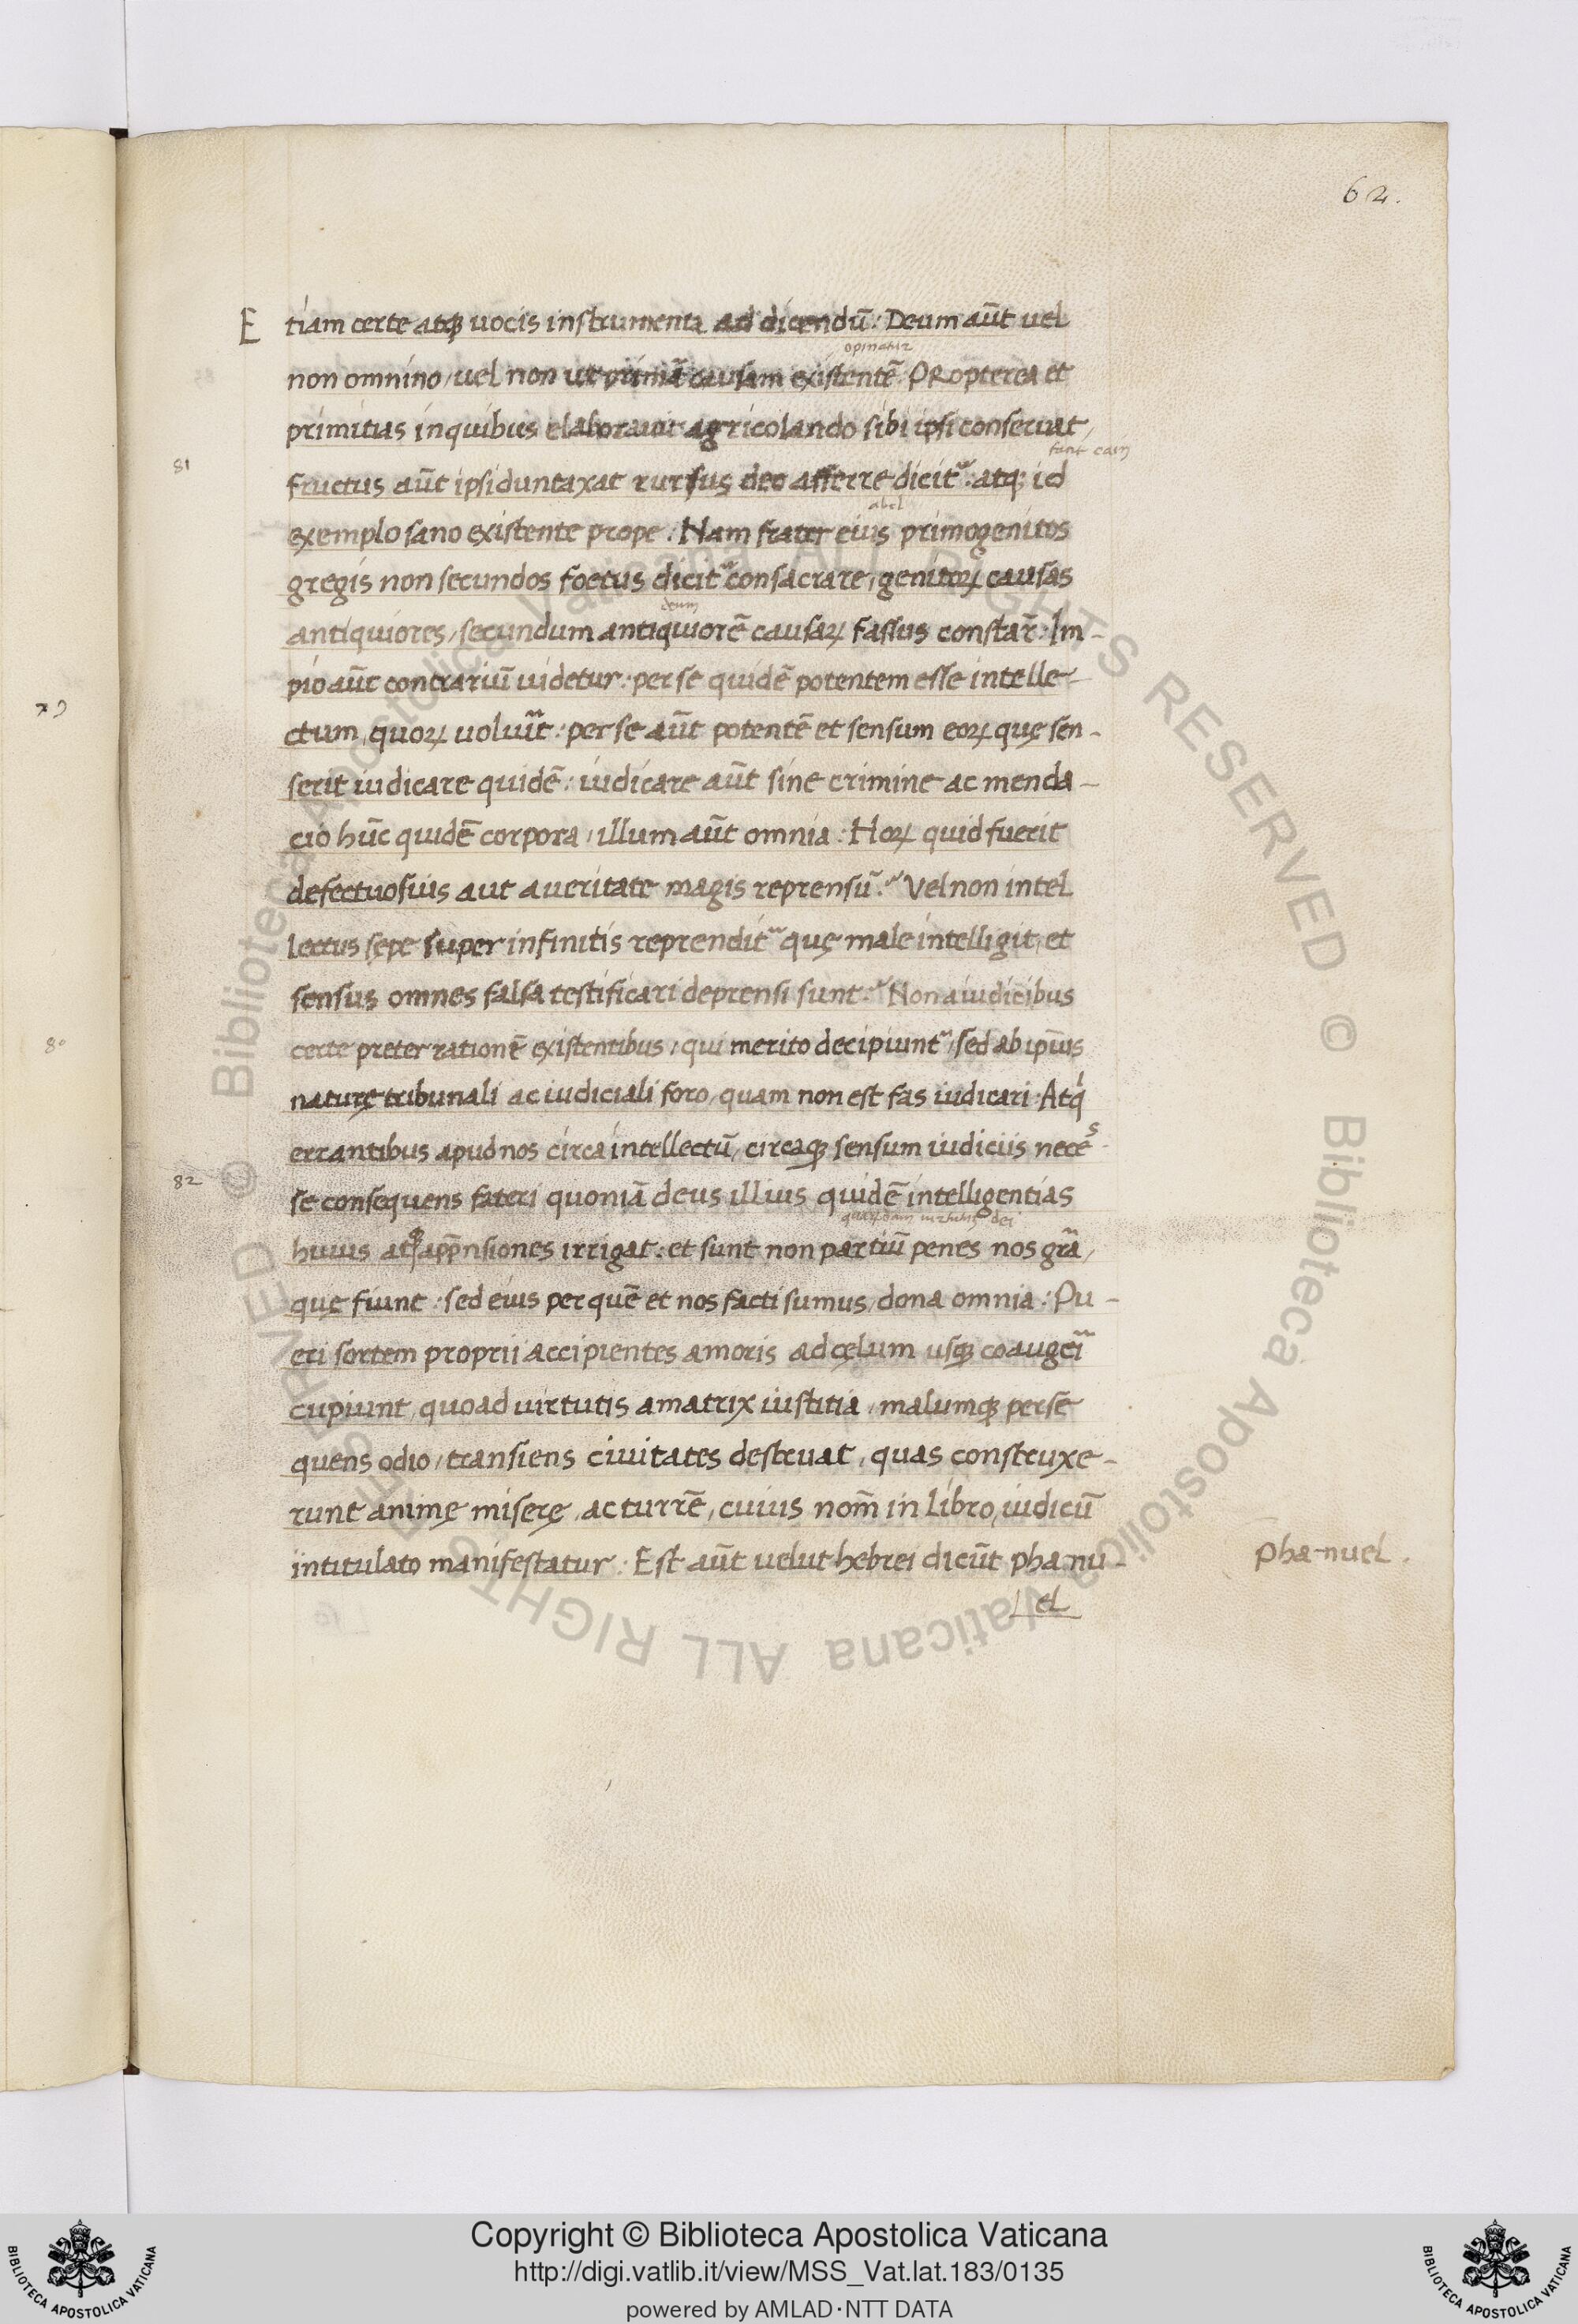 62.
Etiam certe atqꝫ uocis instrumenta ad dicendū: Deum aūt uel
opinatur
non omnino, uel non ut primā causam existentē. PRopterea et
primitias in quibus elaborauit agricolando sibi ipsi conseruat,
fuit cain
81
fructus aūt ipsi duntaxat rursus deo afferre dicit᷑: atq; id
abel
exemplo sano existente prope. Nam frater eius primogenitos
gregis non secundos foetus dicit᷑ consacrare, genitoꝝ causas
deum
antiquiores, secundum antiquiorē causaꝝ fassus constar̄: Im-
pio aūt contrariū uidetur: per se quidē potentem esse intelle-
79
ctum, quoꝝ uolūt: per se aūt potentē et sensum eoꝝ quę sen-
serit iudicare quidē: iudicare aūt sine crimine ac menda-
cio hūc quidē corpora, illum aūt omnia: Hoꝝ quid fuerit
defectuosius aut a ueritate magis reprensū. Vel non intel
lectus sępe super infinitis reprendit᷑ quę male intelligit, et
sensus omnes falsa testificari deprensi sunt. Non a iudicibus
80
certe preter rationē existentibus, qui merito decipiunt᷑, sed ab ip̄ius
naturę tribunali ac iudiciali foro, quam non est fas iudicari: Atq́
errantibus apud nos circa intellectū, circaqꝫ sensum iudiciis neces-
82
se consequens fateri quoniā deus illius quidē intelligentias
dei
huius atqꝫ app̄nsiones irrigat: et sunt non partiū penes nos grā,
quę fiunt: sed eius per quē et nos facti sumus, dona omnia: Pu-
eri sortem proprii accipientes amoris ad cęlum usqꝫ coaugeri
cupiunt, quoad uirtutis amatrix iustitia, malumqꝫ perse
quens odio, transiens ciuitates destruat, quas construxe-
runt animę miserę, ac turrē, cuius nom̄ in libro, iudicū
intitulato manifestatur: Est aūt uelut hebrei dicūt pha-nu-
Pha-nuel.
el
Copyright © Biblioteca Apostolica Vaticana
http://digi.vatlib.it/view/MSS_Vat.lat.183/0135
powered by AMLAD·NTT DATA
BIBLIOTECA APOSTOLICA VATICANA
BIBLIOTECA APOSTOLICA VATICANA
© Biblioteca Apostolica Vaticana ALL RIGHTS RESERVED © Biblioteca Apostolica Vaticana ALL RIGHTS RESERVED